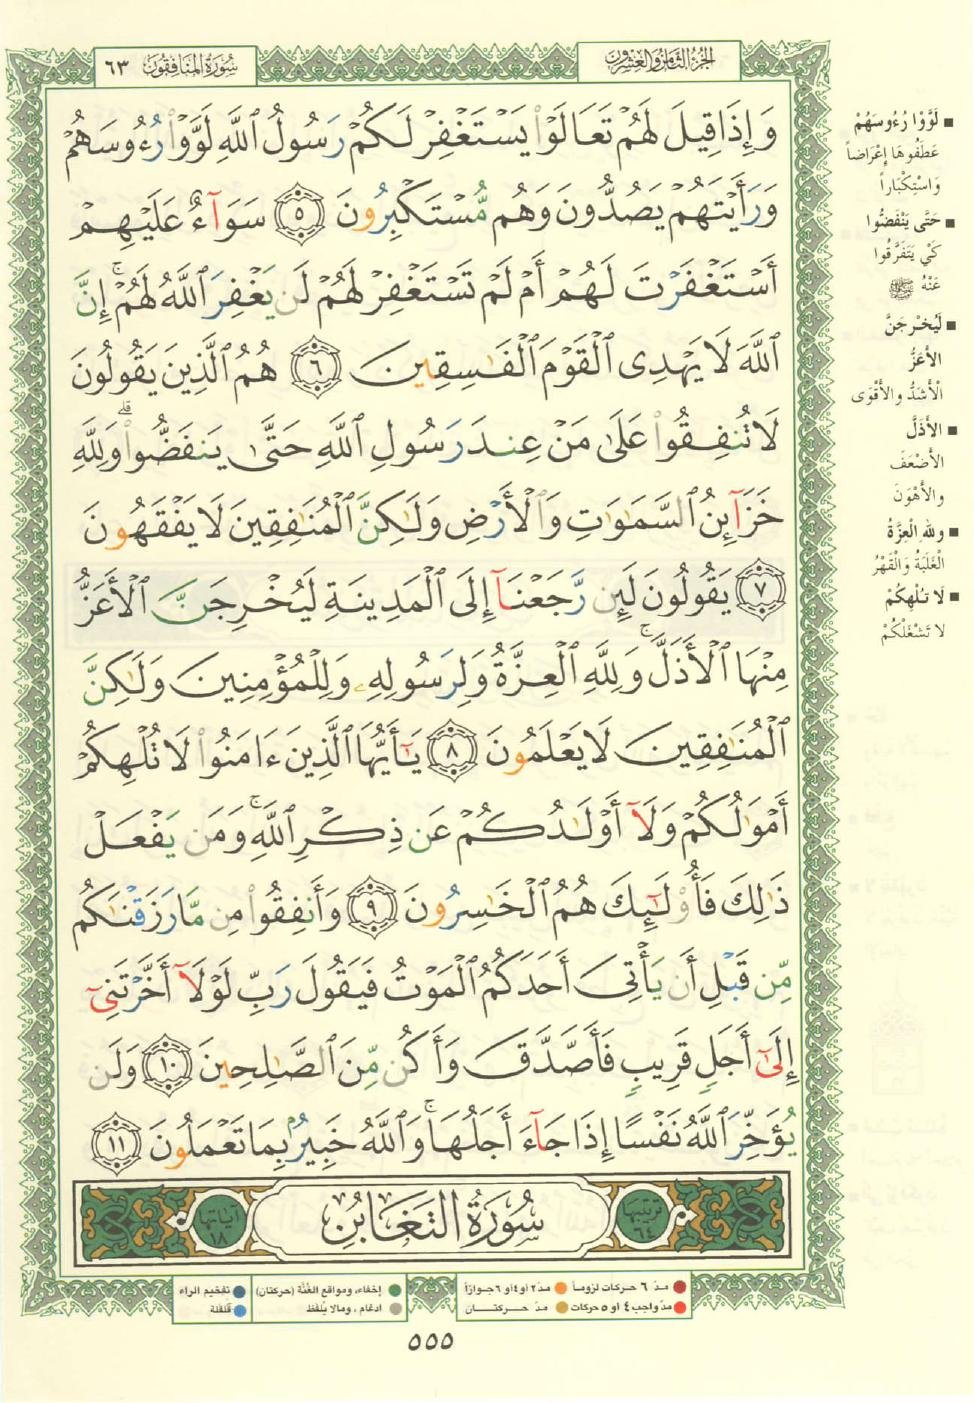 سُورَةُ المُنَافِقُونَ ٦٣
الجُزءُ الثَّامِنُ وَالعِشرُونَ
وَإِذَا قِيلَ لَهُمْ تَعَالَوْا۟ يَسْتَغْفِرْ لَكُمْ رَسُولُ ٱللَّهِ لَوَّوْا۟ رُءُوسَهُمْ
وَرَأَيْتَهُمْ يَصُدُّونَ وَهُم مُّسْتَكْبِرُونَ ٥ سَوَآءٌ عَلَيْهِمْ
أَسْتَغْفَرْتَ لَهُمْ أَمْ لَمْ تَسْتَغْفِرْ لَهُمْ لَن يَغْفِرَ ٱللَّهُ لَهُمْ ۚ إِنَّ
ٱللَّهَ لَا يَهْدِى ٱلْقَوْمَ ٱلْفَـٰسِقِينَ ٦ هُمُ ٱلَّذِينَ يَقُولُونَ
لَا تُنفِقُوا۟ عَلَىٰ مَنْ عِندَ رَسُولِ ٱللَّهِ حَتَّىٰ يَنفَضُّوا۟ ۗ وَلِلَّهِ
خَزَآئِنُ ٱلسَّمَـٰوَٰتِ وَٱلْأَرْضِ وَلَـٰكِنَّ ٱلْمُنَـٰفِقِينَ لَا يَفْقَهُونَ
٧ يَقُولُونَ لَئِن رَّجَعْنَآ إِلَى ٱلْمَدِينَةِ لَيُخْرِجَنَّ ٱلْأَعَزُّ
مِنْهَا ٱلْأَذَلَّ ۚ وَلِلَّهِ ٱلْعِزَّةُ وَلِرَسُولِهِۦ وَلِلْمُؤْمِنِينَ وَلَـٰكِنَّ
ٱلْمُنَـٰفِقِينَ لَا يَعْلَمُونَ ٨ يَـٰٓأَيُّهَا ٱلَّذِينَ ءَامَنُوا۟ لَا تُلْهِكُمْ
أَمْوَٰلُكُمْ وَلَآ أَوْلَـٰدُكُمْ عَن ذِكْرِ ٱللَّهِ ۚ وَمَن يَفْعَلْ
ذَٰلِكَ فَأُو۟لَـٰٓئِكَ هُمُ ٱلْخَـٰسِرُونَ ٩ وَأَنفِقُوا۟ مِن مَّا رَزَقْنَـٰكُم
مِّن قَبْلِ أَن يَأْتِىَ أَحَدَكُمُ ٱلْمَوْتُ فَيَقُولَ رَبِّ لَوْلَآ أَخَّرْتَنِىٓ
إِلَىٰٓ أَجَلٍ قَرِيبٍ فَأَصَّدَّقَ وَأَكُن مِّنَ ٱلصَّـٰلِحِينَ ١٠ وَلَن
يُؤَخِّرَ ٱللَّهُ نَفْسًا إِذَا جَآءَ أَجَلُهَا ۚ وَٱللَّهُ خَبِيرٌۢ بِمَا تَعْمَلُونَ ١١
ترتيبها ٦٤
سُورَةُ التَّغَابُنِ
آياتها ١٨
■ لَوَّوْا رُءُوسَهُمْ
عَطَفُوهَا إِعْرَاضاً
وَاسْتِكْبَاراً
■ حَتَّى يَنْفَضُّوا
كَيْ يَتَفَرَّقُوا
عَنْهُ ﷺ
■ لَيُخْرِجَنَّ
الأَعَزُّ
الْأَشَدُّ والأَقْوَى
■ الأَذَلَّ
الأَضْعَفَ
والأَهْوَنَ
■ وللهِ الْعِزَّةُ
الْغَلَبَةُ وَالْقَهْرُ
■ لَا تُلْهِكُمْ
لا تَشْغَلْكُمْ
مدّ ٦ حركات لزوماً
مدّ ٢ أو ٤ أو ٦ جوازاً
مدّ واجب ٤ أو ٥ حركات
مدّ حركتان
إخفاء، ومواقع الغُنَّة (حركتان)
إدغام، ومالا يُلفَظ
تفخيم الراء
قلقلة
٥٥٥